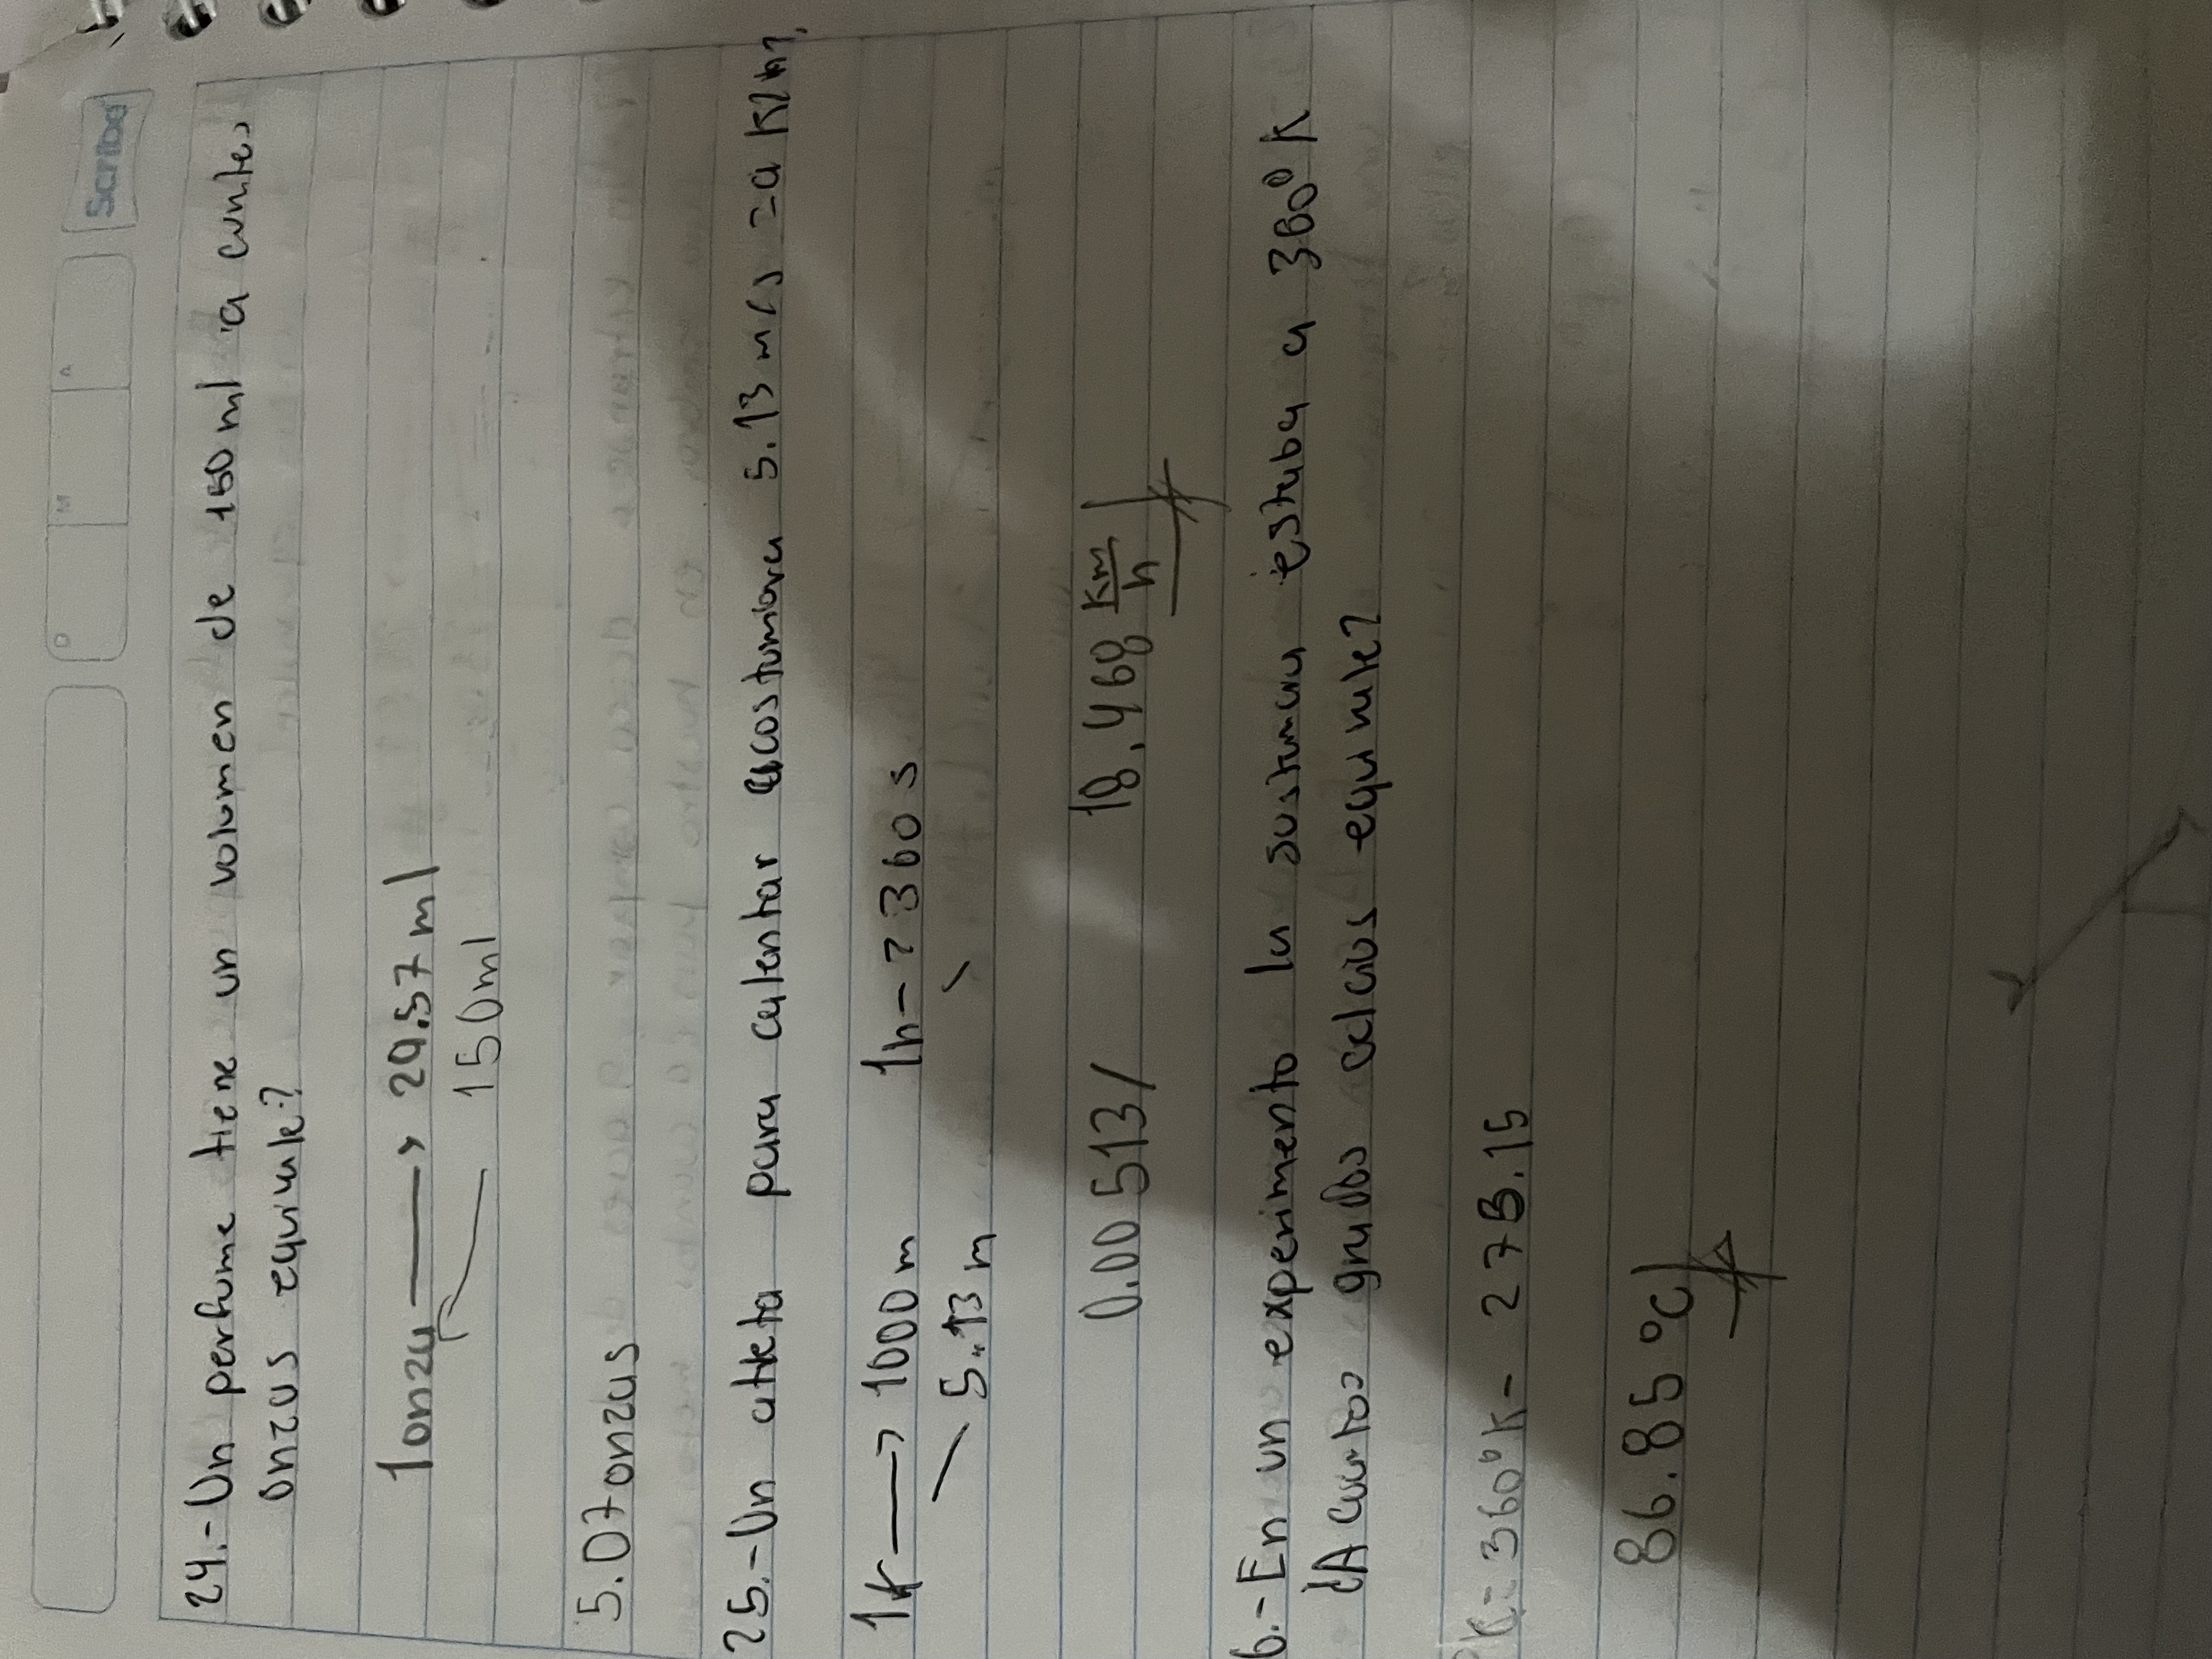 Scribe
D M A
24.- Un perfume tiene un volumen de 150 ml a cuantas
Onzas equivale?
1 onza → 29.57 ml
150ml
5.07onzas
25.- Un atleta para calentar acostumbra 5.13 m
1k → 1000m 1h - 360 s
5.13 m
0.00513/ 18.468 Km/h
6.- En un experimento la sustancia estaba a 360° K
¿A cuantos grados celcius equivale?
°C = 360°K - 273.15
86.85°C